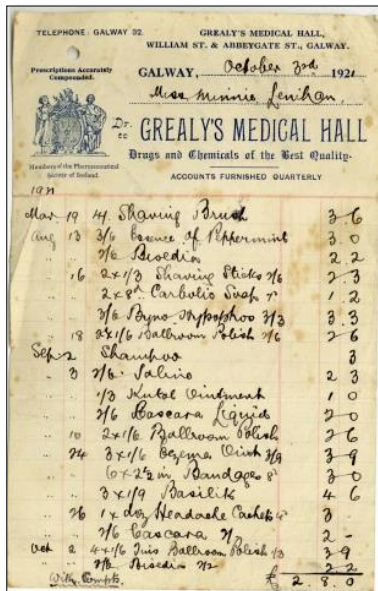 TELEPHONE: GALWAY 32.
GREALY'S MEDICAL HALL,
WILLIAM ST. & ABBEYGATE ST., GALWAY.
Prescriptions Accurately
Compounded.
GALWAY, October 3rd 1921
Miss Minnie Lenihan,
Dr. to GREALY'S MEDICAL HALL
Drugs and Chemicals of the Best Quality.
Members of the Pharmaceutical
Society of Ireland.
ACCOUNTS FURNISHED QUARTERLY
1921
Mar 19 4/. Shaving Brush 3 6
Aug 13 3/6 Essence of Peppermint 3.0
" " 2/6 Bisedia 2 2
" 16 2 x 1/3 Shaving Sticks 2/6 2 3
" " 2 x 8d Carbolic Soap 7d 1.2
" " 3/6 Byno Hypophos 3/3 3.3
" 18 2 x 1/6 Ballroom Polish 2/6 2 6
Sep 2 Shampoo 3
" 3 2/6 Salino 2 3
" " 1/3 Kutol Ointment 1 0
" " 2/6 Cascara Liquid 2 0
" 10 2 x 1/6 Ballroom Polish 2 6
" 24 3 x 1/6 Eczema Oint 3/9 3 9
" " 6 x 2½ in Bandages 8d 3 0
" " 3 x 1/9 Basilik 4 6
" 26 1 x doz Headache Cachets 3 -
" " 2/6 Cascara 2/ 2 -
Oct 2 4 x 1/6 Tins Ballroom Polish 1/3 3 9
" " 2/6 Bisedia 2/2 2 2
With Compts. £ 2.8.0